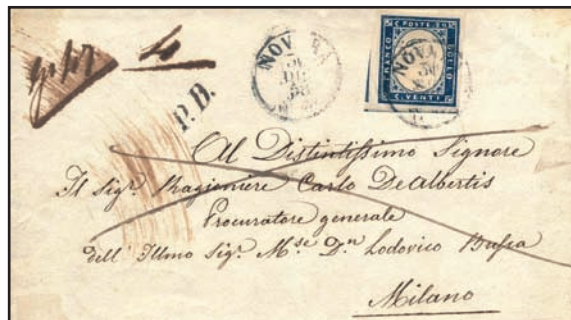 P.D.
NOVARA
30
DIC
58
C. POSTE 20
FRANCO
BOLLO
C. VENTI
NOVA
30
Al Distintissimo Signore
Il Sigr. Ragioniere Carlo DeAlbertis
Procuratore generale
dell' Illmo Sigr. M.se D.n Lodovico
Milano